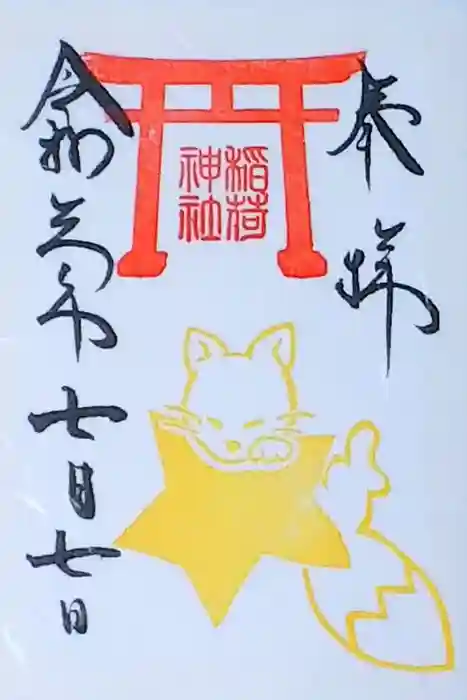 奉拝
稲荷
神社
令和年七月七日